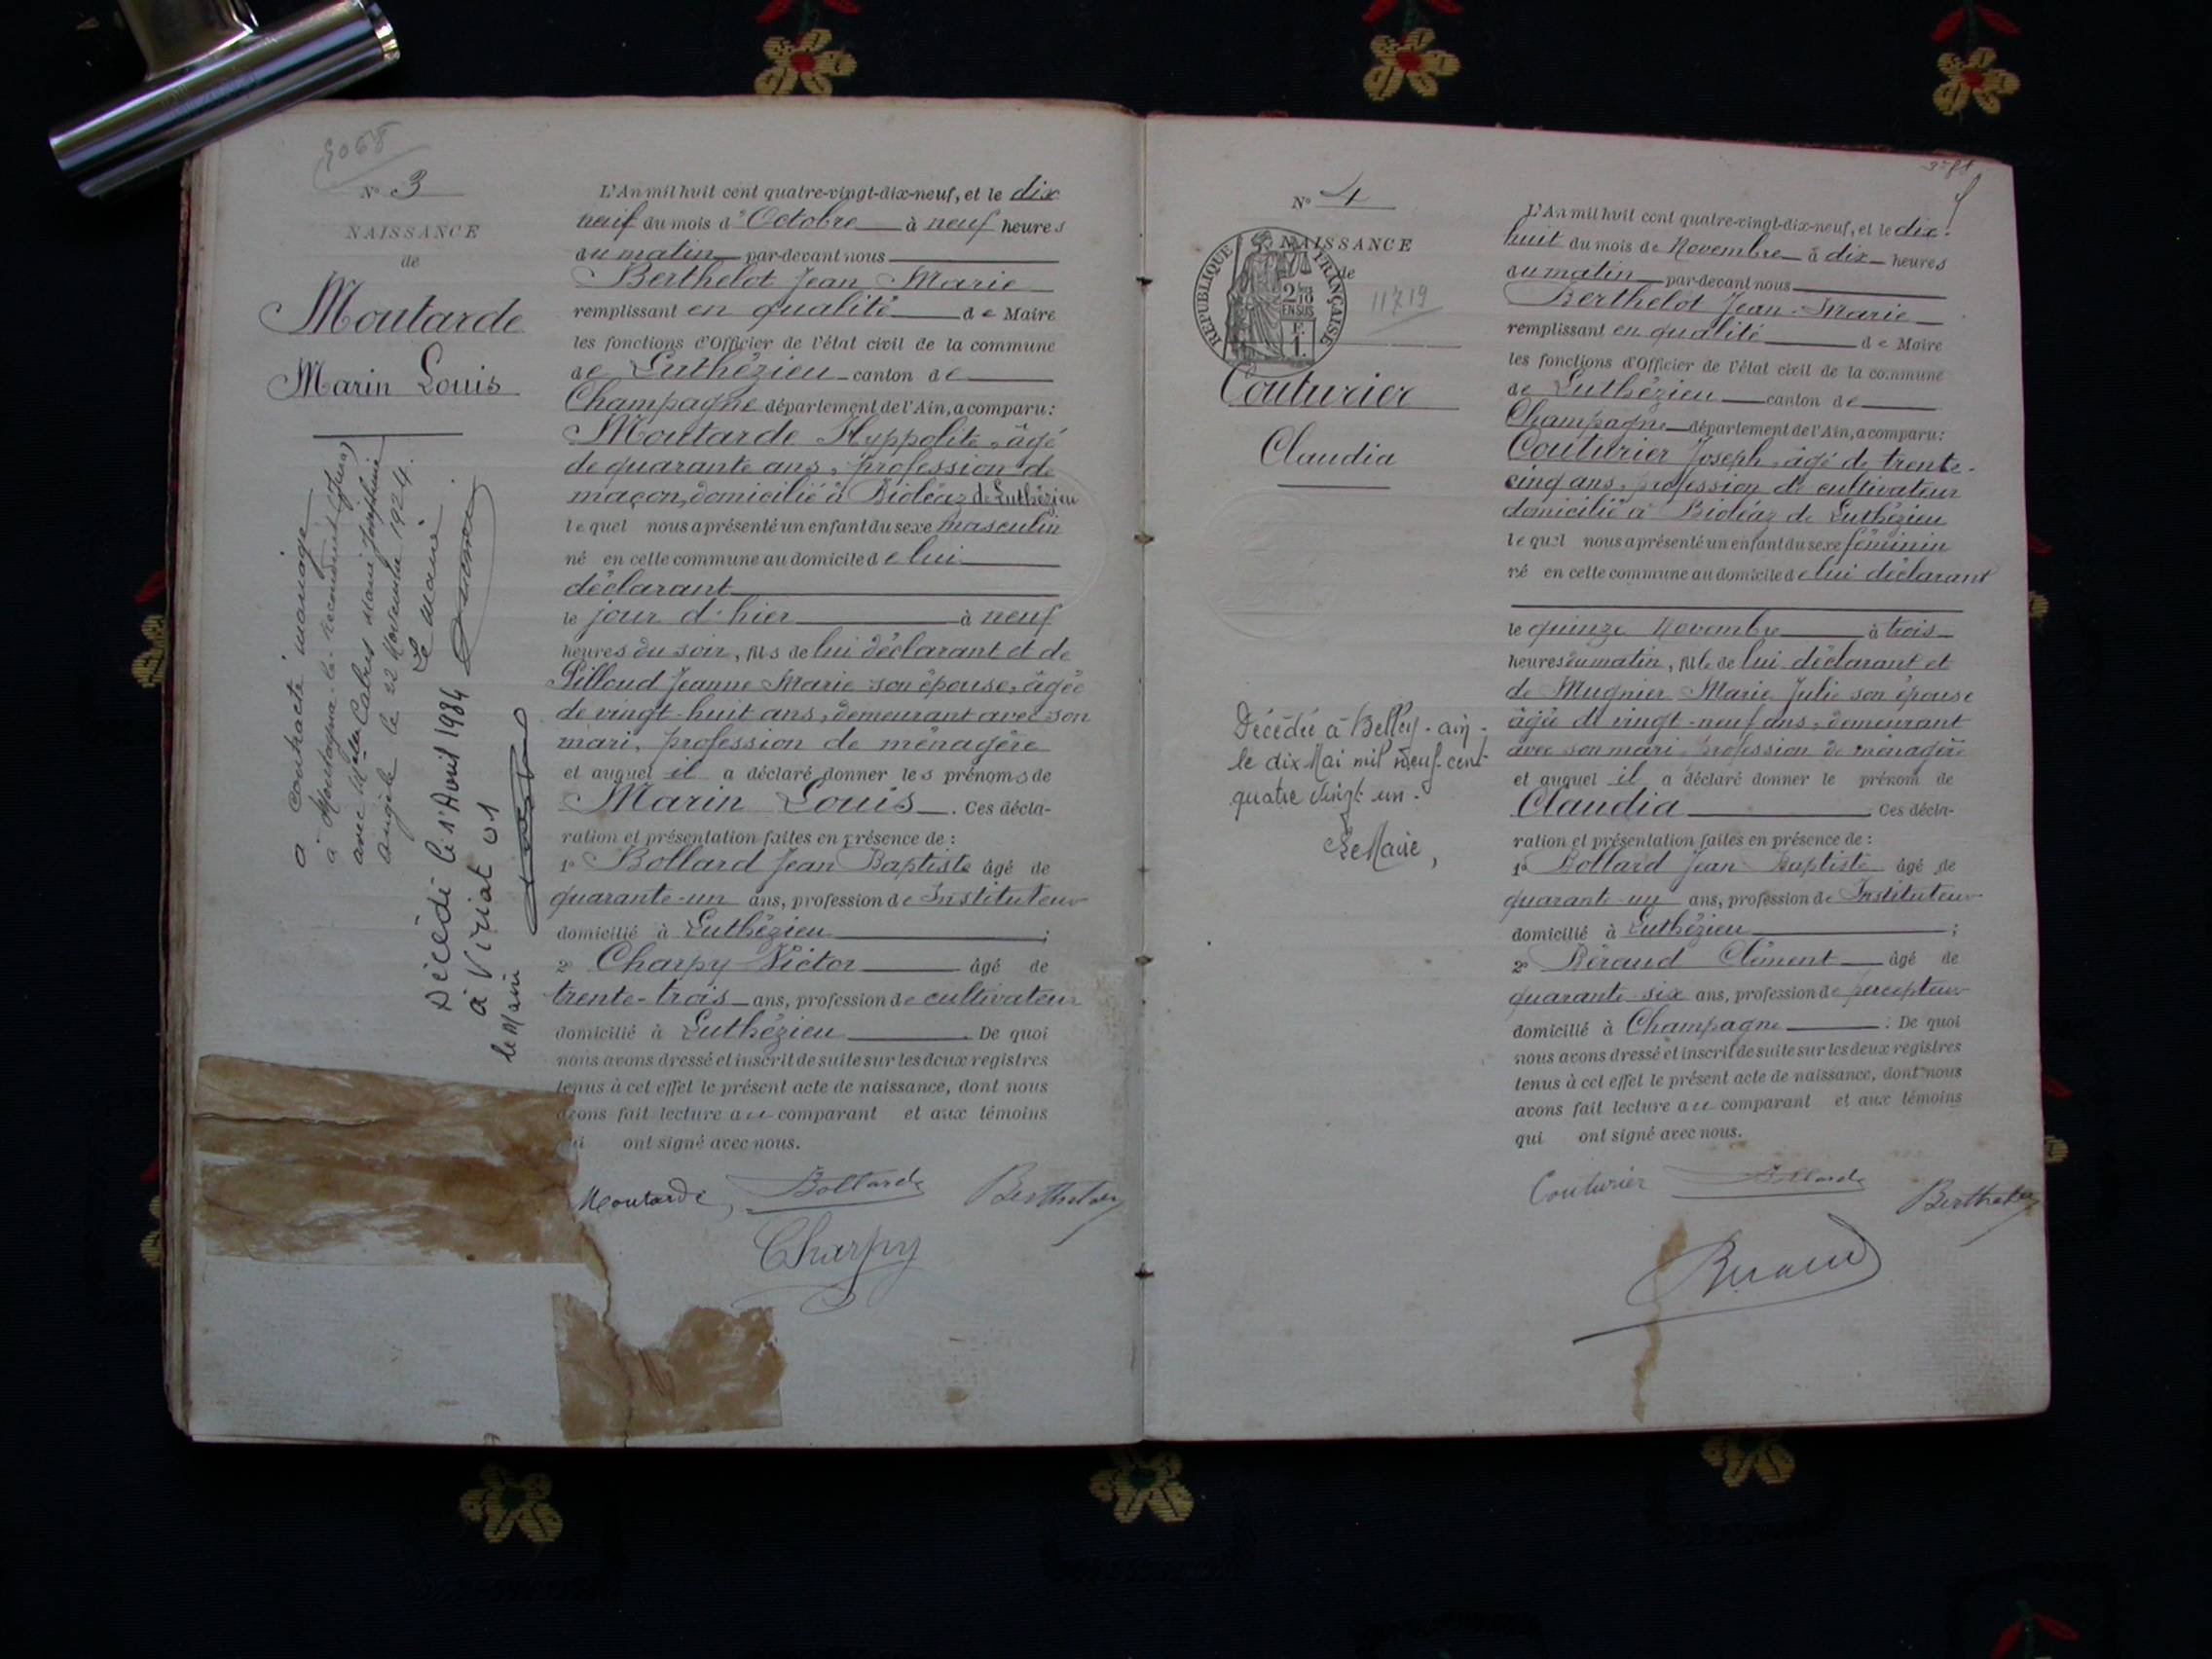 3068
N° 3
NAISSANCE
de
Moutarde
Marin Louis
a contracté mariage
à Montagna-le-Reconduit (Jura)
avec Melle Cabus Marie Joséphine
Angèle le 22 Novembre 1924.
Le maire
Décédé le 1er Avril 1984
à Viriat 01
le Maire
L'An mil huit cent quatre-vingt-dix-neuf, et le dix
neuf du mois d'Octobre à neuf heures
du matin par-devant nous
Berthelot Jean Marie
remplissant en qualité de Maire
les fonctions d'Officier de l'état civil de la commune
de Luthézieu canton de
Champagne département de l'Ain, a comparu:
Moutarde Hyppolite, âgé
de quarante ans, profession de
maçon, domicilié à Bioléaz de Luthézieu
lequel nous a présenté un enfant du sexe masculin
né en cette commune au domicile de lui
déclarant
le jour d'hier à neuf
heures du soir, fils de lui déclarant et de
Pilloud Jeanne Marie son épouse, âgée
de vingt-huit ans, demeurant avec son
mari, profession de ménagère
et auquel il a déclaré donner les prénoms de
Marin Louis. Ces décla-
ration et présentation faites en présence de:
1° Bollard Jean Baptiste âgé de
quarante-un ans, profession de Instituteur
domicilié à Luthézieu;
2° Charpy Victor âgé de
trente-trois ans, profession de cultivateur
domicilié à Luthézieu. De quoi
nous avons dressé et inscrit de suite sur les deux registres
tenus à cet effet le présent acte de naissance, dont nous
avons fait lecture au comparant et aux témoins
qui ont signé avec nous.
Moutarde, Bollard Berthelot
Charpy
N° 4
NAISSANCE
de
REPUBLIQUE FRANÇAISE
2/10
EN SUS
F.
1.
11719
Couturier
Claudia
Décédée à Belley - ain -
le dix Mai mil neuf cent
quatre vingt un.
Le Maire,
L'An mil huit cent quatre-vingt-dix-neuf, et le dix-
huit du mois de Novembre à dix heures
du matin par-devant nous
Berthelot Jean-Marie
remplissant en qualité de Maire
les fonctions d'Officier de l'état civil de la commune
de Luthézieu canton de
Champagne département de l'Ain, a comparu:
Couturier Joseph, âgé de trente-
cinq ans, profession de cultivateur
domicilié à Bioléaz de Luthézieu
lequel nous a présenté un enfant du sexe féminin
né en cette commune au domicile de lui déclarant
le quinze Novembre à trois
heures du matin, fille de lui déclarant et
de Mugnier Marie Julie son épouse
âgée de vingt-neuf ans, demeurant
avec son mari, profession de ménagère
et auquel il a déclaré donner le prénom de
Claudia. Ces décla-
ration et présentation faites en présence de:
1° Bollard Jean Baptiste âgé de
quarante un ans, profession de Instituteur
domicilié à Luthézieu;
2° Béraud Clément âgé de
quarante-six ans, profession de percepteur
domicilié à Champagne: De quoi
nous avons dressé et inscrit de suite sur les deux registres
tenus à cet effet le présent acte de naissance, dont nous
avons fait lecture au comparant et aux témoins
qui ont signé avec nous.
Couturier Bollard Berthelot
Béraud